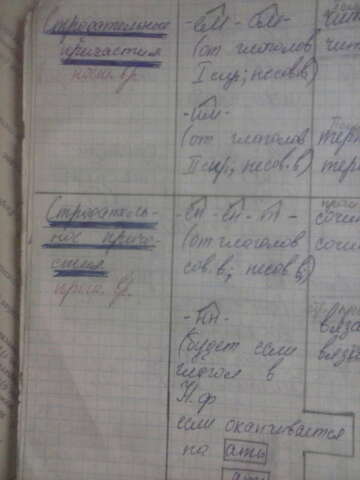 Страдательные
причастия
наст. вр.
-ем- -ом-
(от глаголов
I спр; несов.в)
-им-
(от глаголов
II спр; несов.в)
Страдатель-
ное прича-
стия
прош. вр.
-ен -ён -т -
(от глаголов
сов.в; несов.в)
-нн-
(будет если
глагол в
Н.ф
если оканчивается
на ать